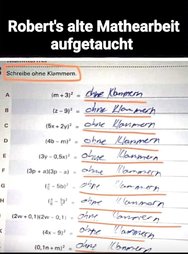 Robert's alte Mathearbeit
aufgetaucht
Schreibe ohne Klammern.
A (m + 3)² = ohne Klammern
B (z − 9)² = ohne Klammern
C (5x + 2y)² = ohne Klammern
D (4b − m)² = ohne Klammern
E (3y − 0,5x)² = ohne Klammern
F (3p + a)(3p − a) = ohne Klammern
G − 5b)² = ohne Klammern
H = ohne Klammern
(2w + 0,1)(2w − 0,1) = ohne Klammern
(4x − 9)² = ohne Klammern
(0,1n + m)² = ohne Klammern